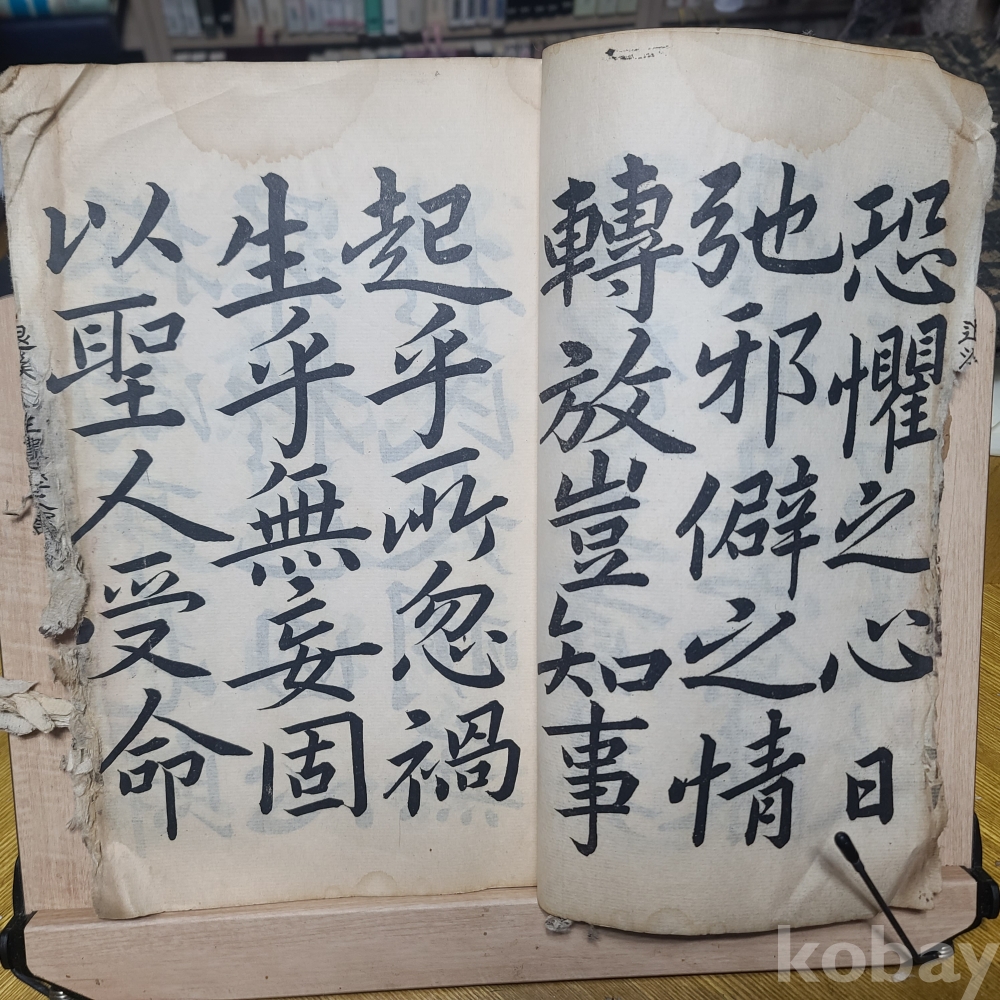 恐懼之心日
弛邪僻之情
轉放豈知事
起乎所忽禍
生乎無妄固
以聖人受命
kobay